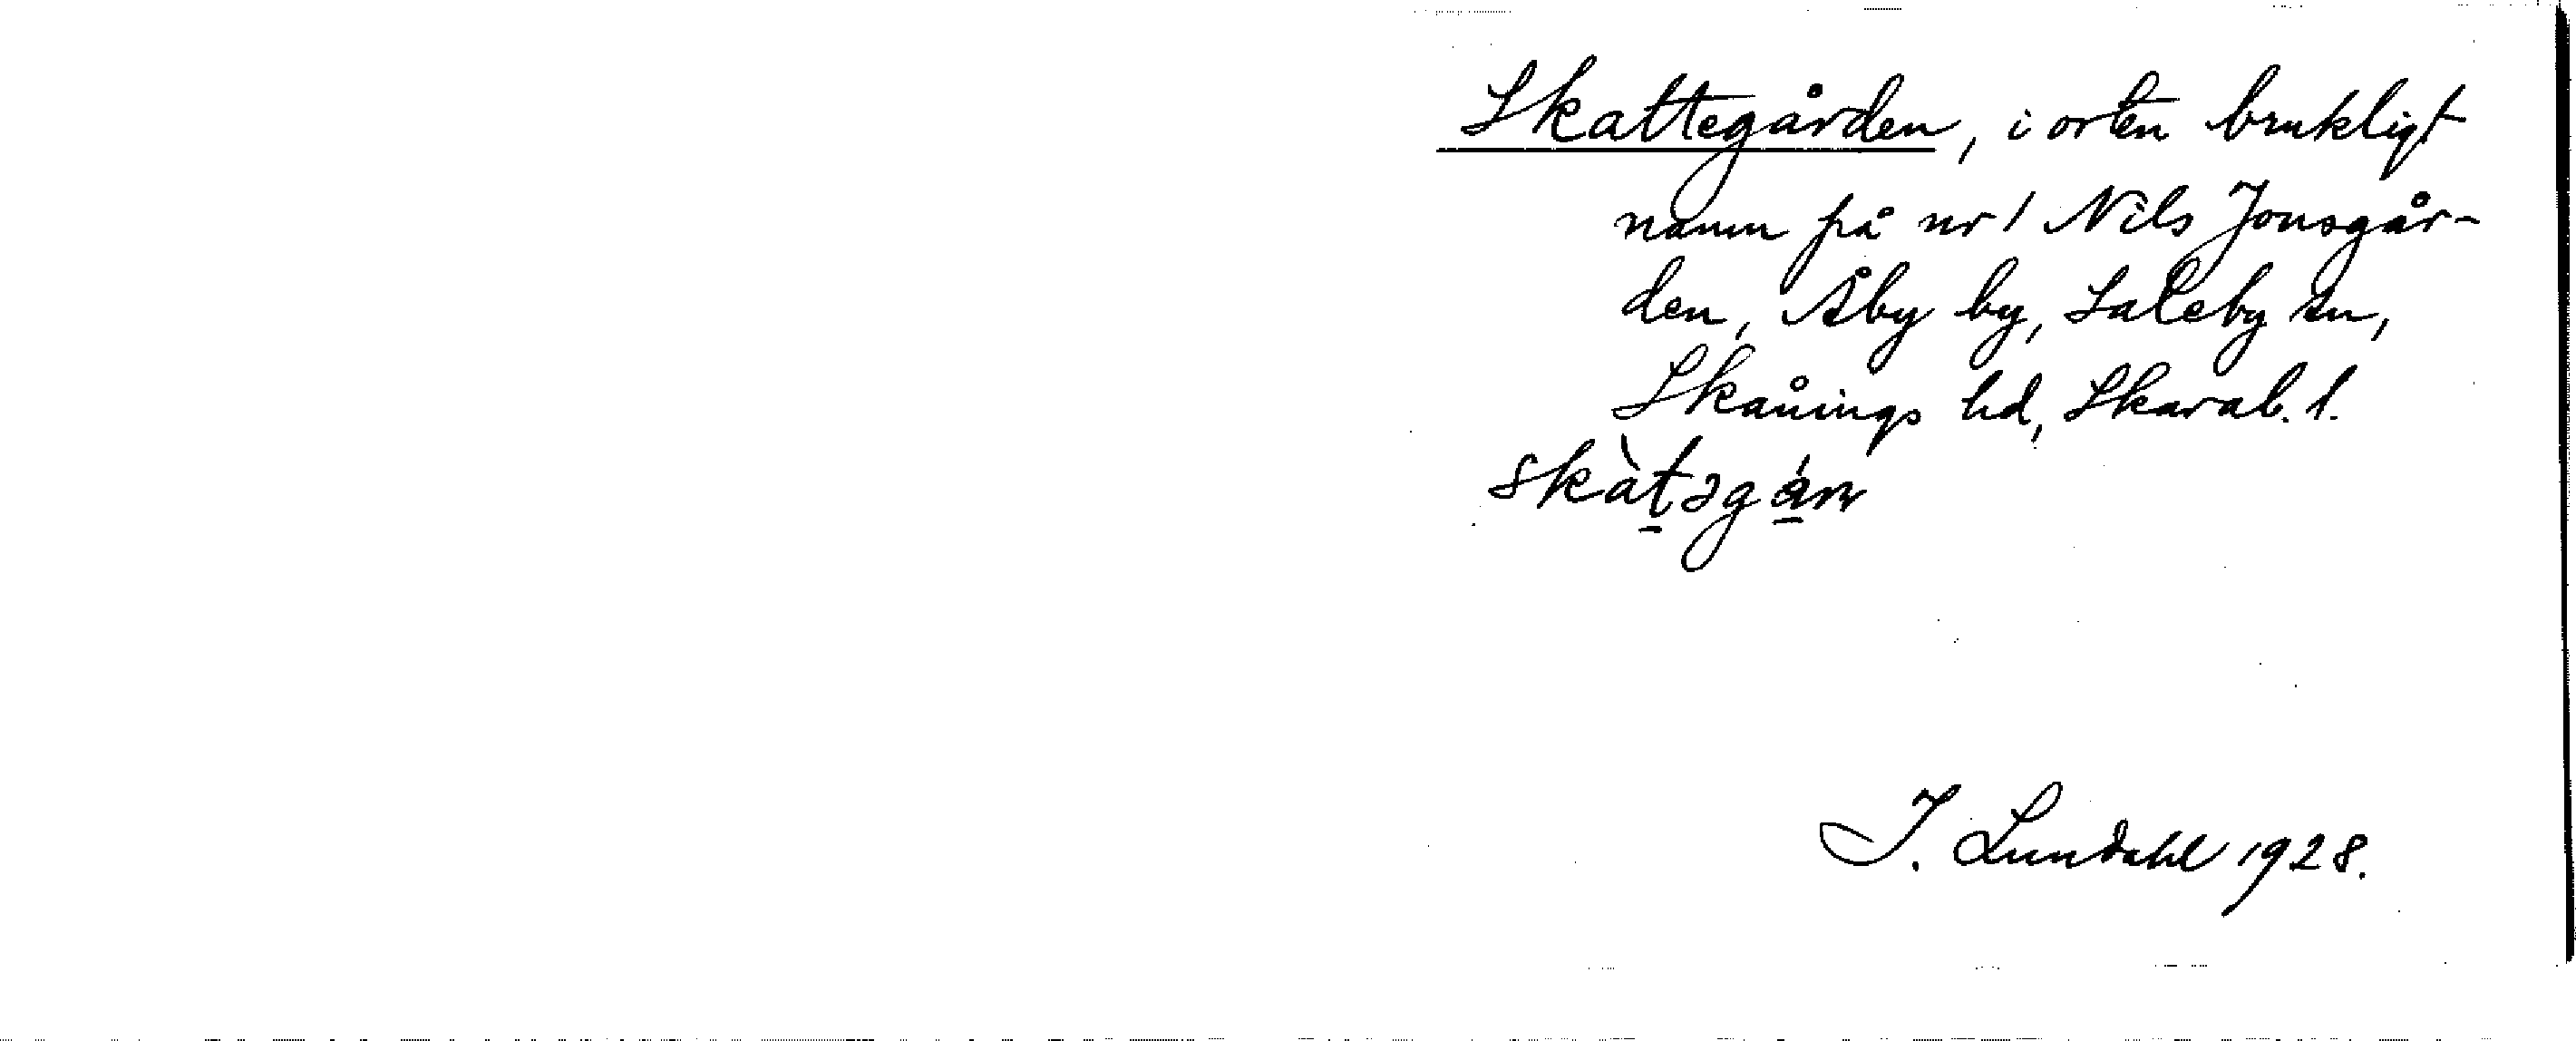 Skattegården, i orten brukligt
namn på nr 1 Nils Jonsgår-
den, Åby by, Saleby sn,
Skånings hd, Skarab. l.
skàtəgán
I. Lundahl 1928.